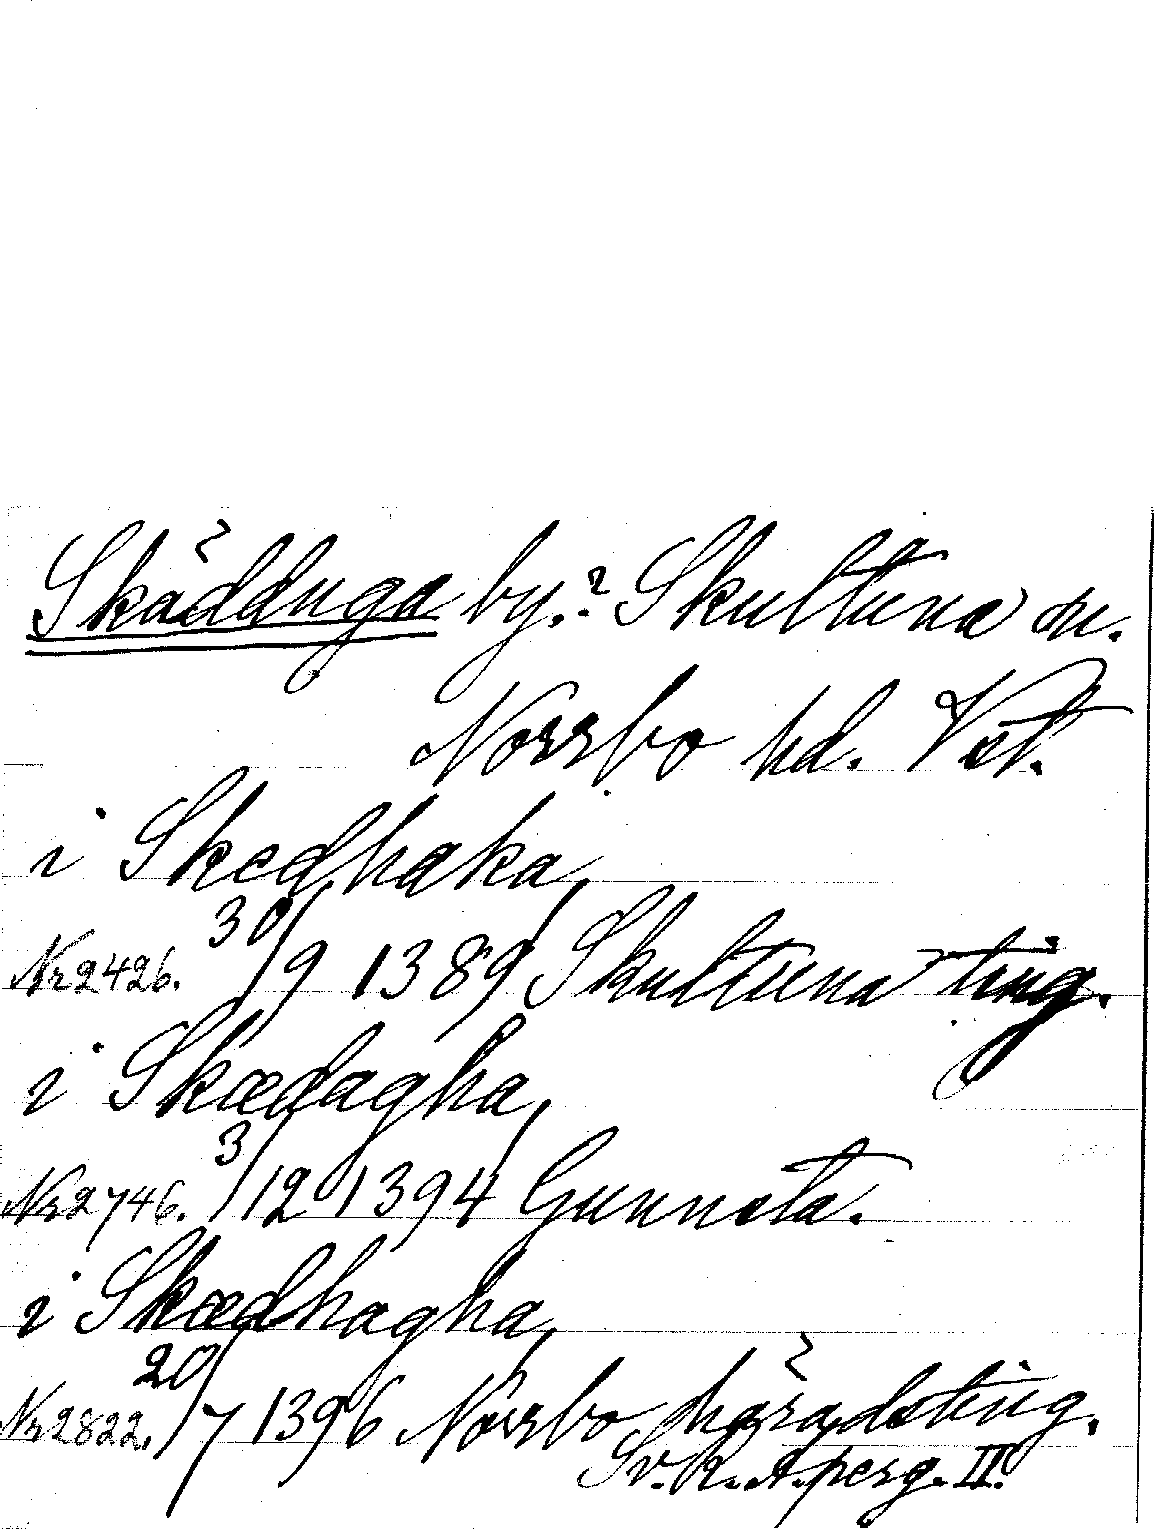 Skädduga by.? Skultuna sn.
Norrbo hd. Vstl.
i Skedhaka,
Nr 2426. 30/9 1389 Skultuna ting.
i Skædagha,
Nr 2746. 3/12 1394 Gunnsta.
i Skædhagha,
Nr 2822. 20/7 1396 Norrbo häradsting.
Sv. R. A. perg. II.